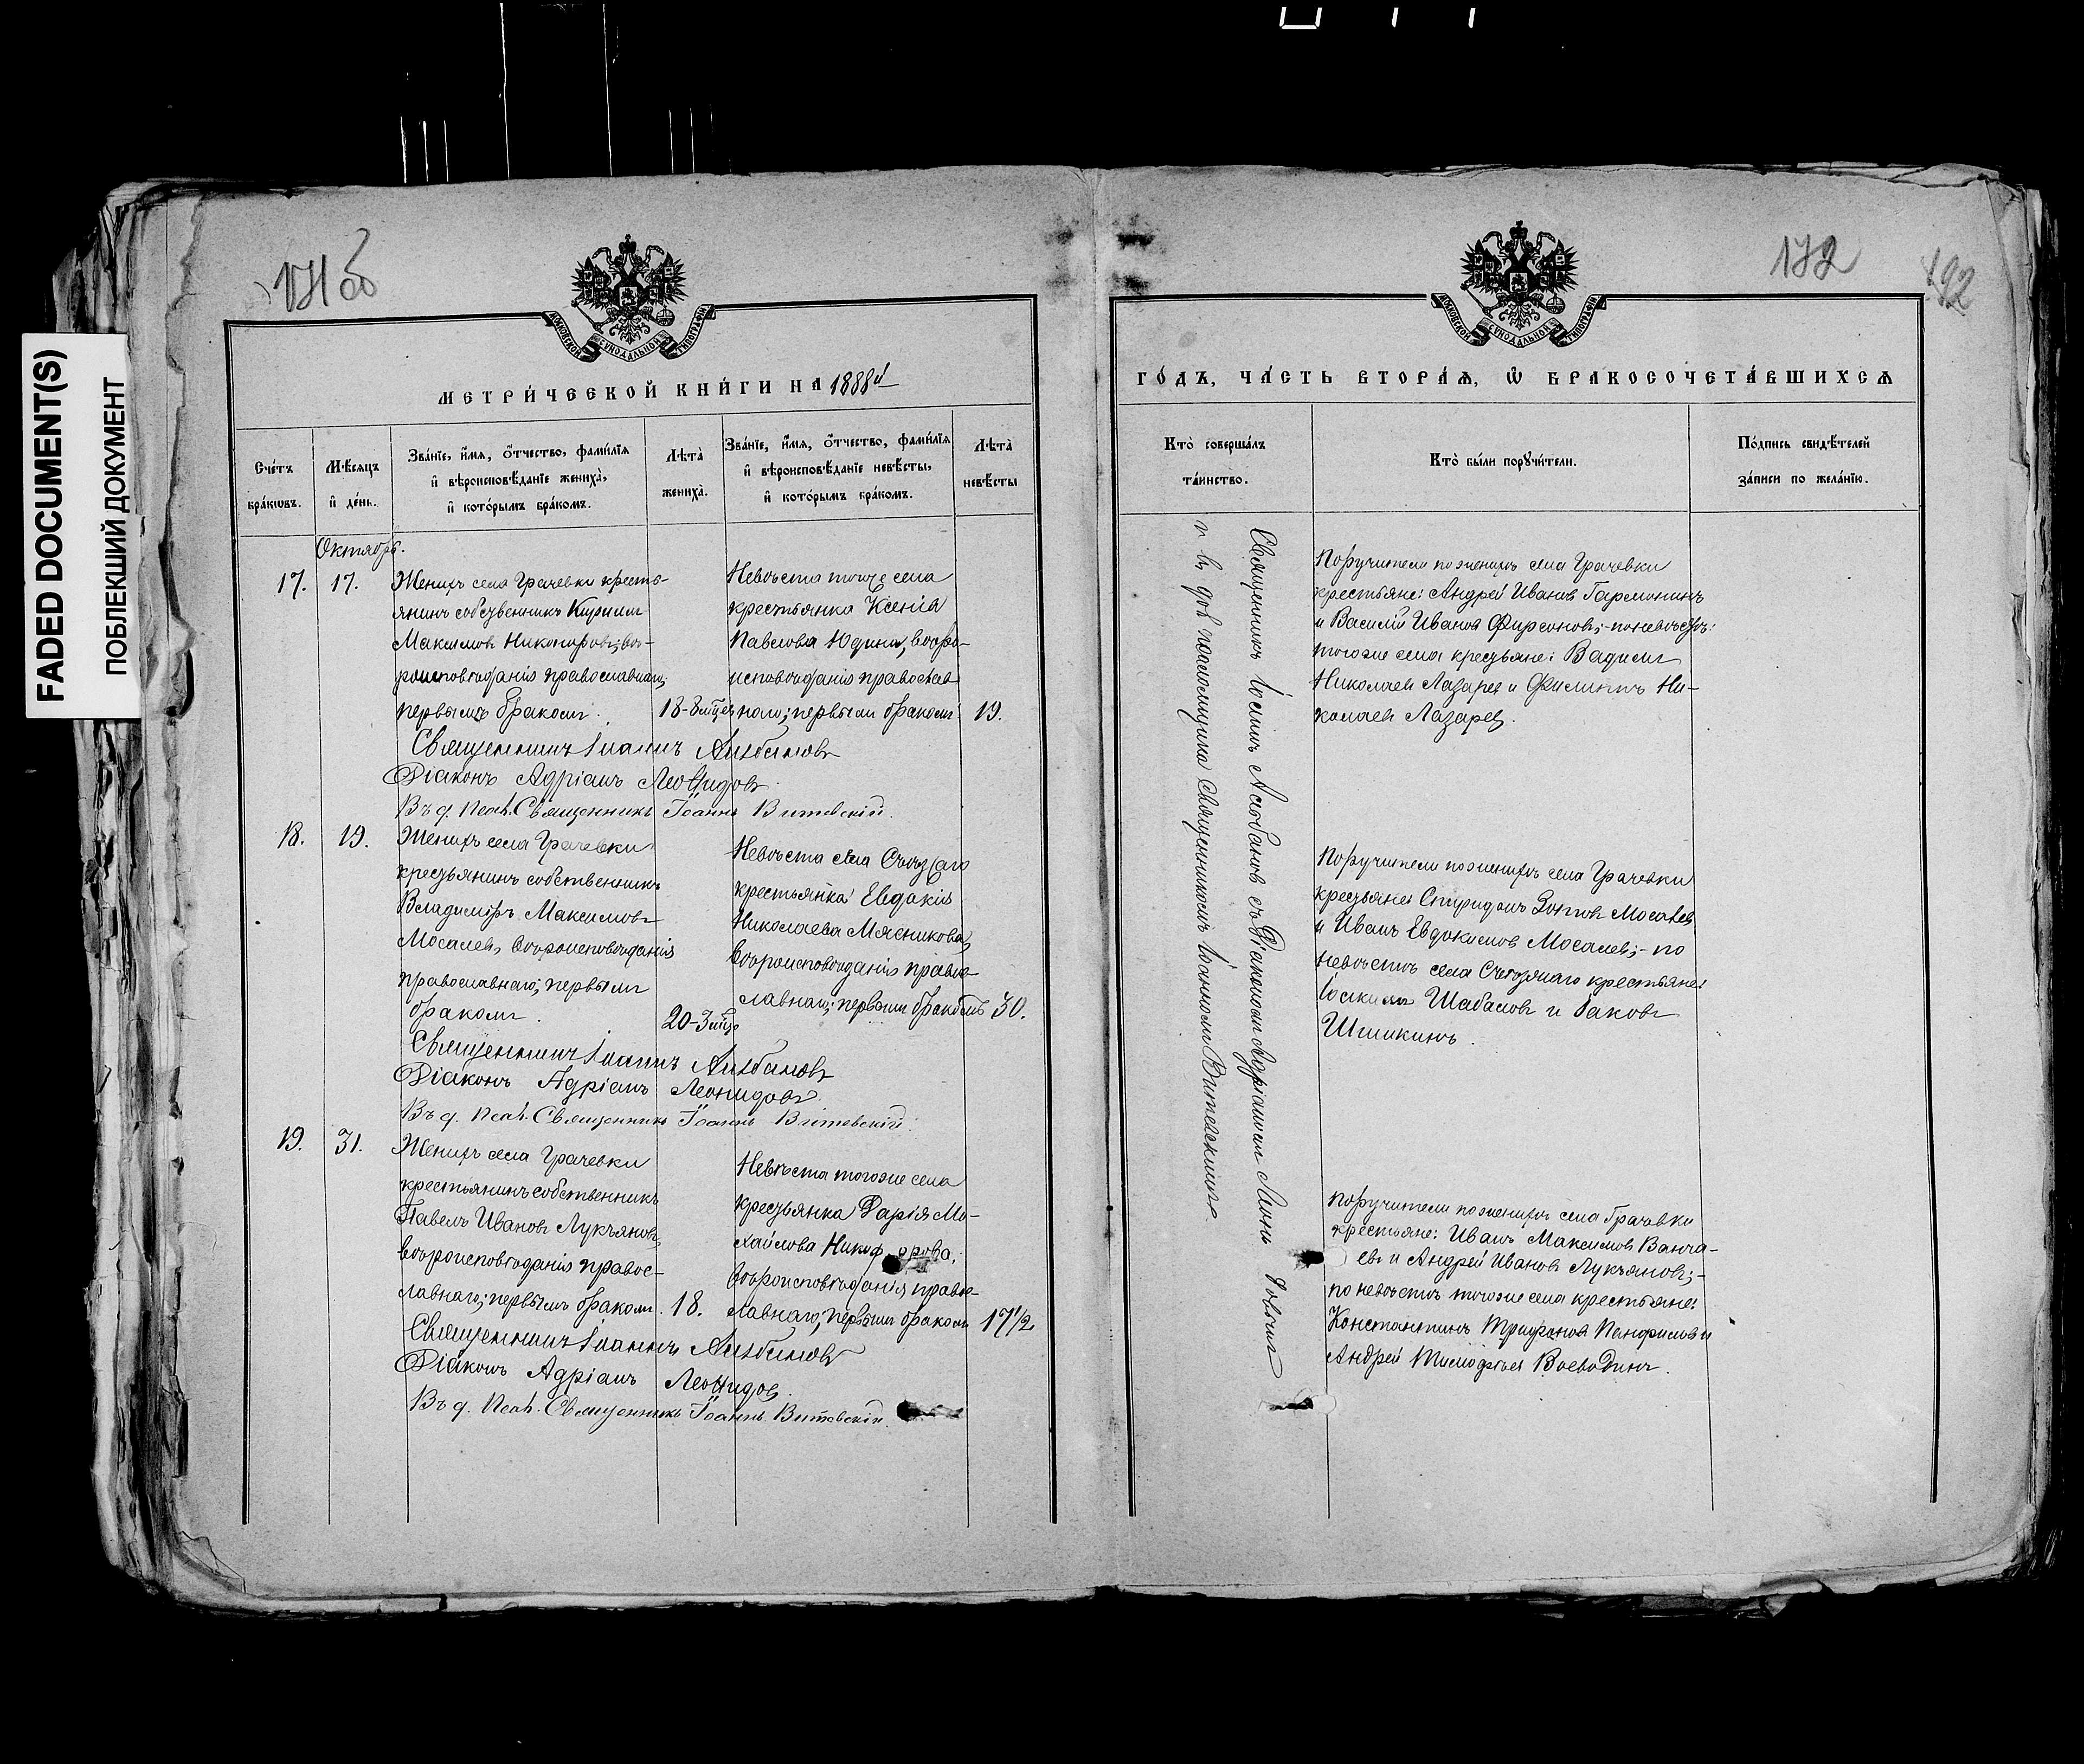 FADED DOCUMENT(S)
ПОБЛЕКШИЙ ДОКУМЕНТ
171 об
172
192
МОСКОВСКОЙ СУНОДАЛЬНОЙ ТИПОГРАФІИ
МЕТРИ́ЧЕСКОЙ КНИ́ГИ НА 1888й
Сче́тъ бра́кωвъ.
Мѣ́сяцъ и҆ де́нь.
Зва́нїе, и҆́мя, о҆́тчество, фами́лїя
и҆ вѣроисповѣ́данїе жениха̀,
и҆ кото́рымъ бра́комъ.
Лѣта̀ жениха̀.
Зва́нїе, и҆́мя, о҆́тчество, фами́лїя
и҆ вѣроисповѣ́данїе невѣ́сты,
и҆ кото́рымъ бра́комъ.
Лѣта̀ невѣ́сты
Октябрь.
17. 17.
Женихъ села Грачевки кресть-
янинъ собственникъ Кирилъ
Максимовъ Никоноровъ, вѣ-
роисповѣданія православнаго;
первымъ бракомъ.
18-8 мѣсяц
Невѣста того же села
крестьянка Ксенія
Павлова Юдина, вѣро-
исповѣданія православ
наго; первымъ бракомъ
19.
Священникъ Іоаннъ Алѣбановъ
Діаконъ Адріанъ Леонидовъ
Въ д. псал. Священникъ Іоаннъ Витевскій.
18. 19.
Женихъ села Грачевки
крестьянинъ собственникъ
Владиміръ Максимовъ
Мосалевъ, вѣроисповѣданія
православнаго; первымъ
бракомъ.
20-3 мѣсяц
Невѣста села Съѣзжаго
крестьянка Евдокія
Николаева Мясникова,
вѣроисповѣданія правос-
лавнаго; первымъ бракомъ
30.
Священникъ Іоаннъ Алѣбановъ
Діаконъ Адріанъ Леонидовъ
Въ д. псал. Священникъ Іоаннъ Витевскій.
19. 31.
Женихъ села Грачевки
крестьянинъ собственникъ
Павелъ Ивановъ Лукъяновъ,
вѣроисповѣданія правос-
лавнаго; первымъ бракомъ.
18.
Невѣста того же села
крестьянка Дарія Ми-
хайлова Никифорова,
вѣроисповѣданія правос-
лавнаго; первымъ бракомъ
17 1/2
Священникъ Іоаннъ Алѣбановъ
Діаконъ Адріанъ Леонидовъ
Въ д. псал. Священникъ Іоаннъ Витевскій.
ГО́ДЪ, ЧА́СТЬ ВТОРА́Я, Ѡ҆ БРАКОСОЧЕТА́ВШИХСЯ
Кто̀ соверша́лъ та́инство.
Кто̀ бы́ли порꙋчи́тели.
По́дпись свидѣ́телей за́писи по жела́нїю.
Священникъ Іоаннъ Алѣбановъ съ Діакономъ Адріаномъ Леонидовымъ
и въ долж. псаломщика Священникомъ Іоанномъ Витевскимъ.
Поручители по женихѣ села Грачевки
крестьяне: Андрей Ивановъ Гармонинъ
и Василій Ивановъ Фирсоновъ;-по невѣстѣ:
того же села крестьяне:
Николаевъ Лазарев и Филиппъ Ни-
колаевъ Лазарев.
Поручители по женихѣ села Грачевки
крестьяне: Спиридонъ Зотовъ Мосалевъ
и Иванъ Евдокимовъ Мосалев;-по
невѣстѣ села Съѣзжаго крестьяне:
Іоакимъ Шабаловъ и Іаковъ
Шишкинъ.
Поручители по женихѣ села Грачевки
крестьяне: Иванъ Максимовъ Ванча-
евъ и Андрей Ивановъ Лукъяновъ;-
по невѣстѣ того же села крестьяне:
Константинъ Трифоновъ Панфиловъ и
Андрей Тимофѣевъ Воеводинъ.